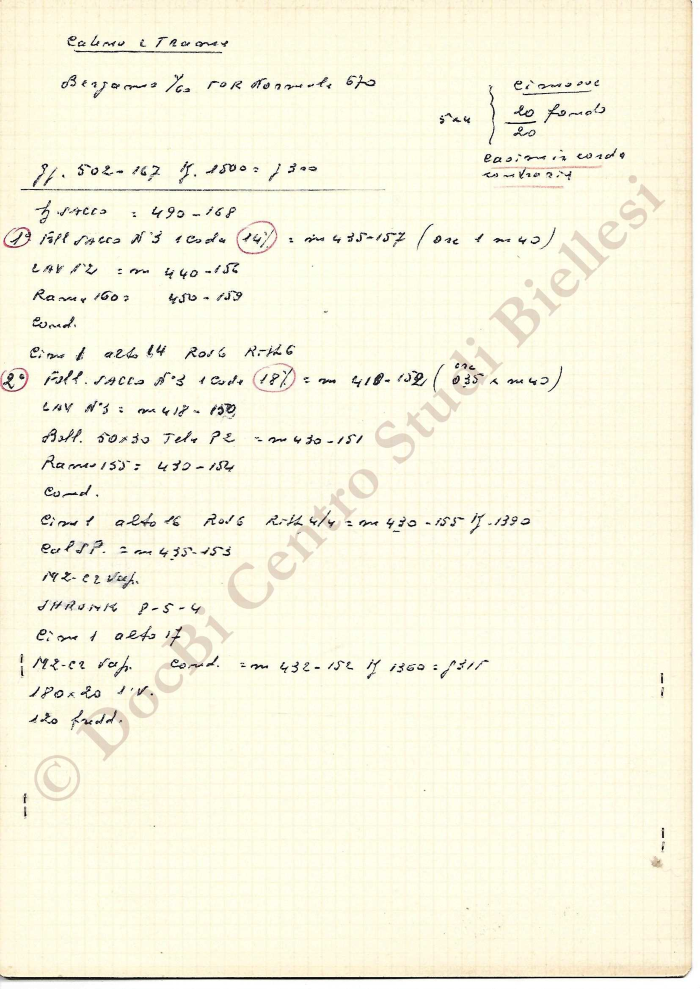 Catena e Trama
Bergamo 1/60 TOR Normale 670
5 x 4
Cimosse
20 fondo
20
Casimiz corda
contraria
gf. 502-167 K. 1500 = g 300
h SACCO = 490-168
1º Foll SACCO Nº3 1 Coda 14% = m 435-157 ( ore 1 m 40 )
LAV Nº2 = m 440-156
Rame 160 = 450-159
Cond.
Cim 1 alto 14 Ros 6 Rith 6
2º Foll. SACCO Nº3 1 Coda 18% = m 410-152 ( ore 035 x m 40 )
LAV Nº3 = m 418-150
Boll. 50x30 Tela P2 = m 430-151
Rame 155 = 430-154
Cond.
Cim 1 alto 16 Ros 6 Rith 4/4 = m 430-155 K. 1390
Cal SP. = m 435-153
M2-C2 Vap.
SHRUNK 8-5-4
Cim 1 alto 17
M2-C2 Vap. Cond. = m 432-152 K 1360 = g 315
180x20 1'V.
120 fredd.
© DocBi Centro Studi Biellesi